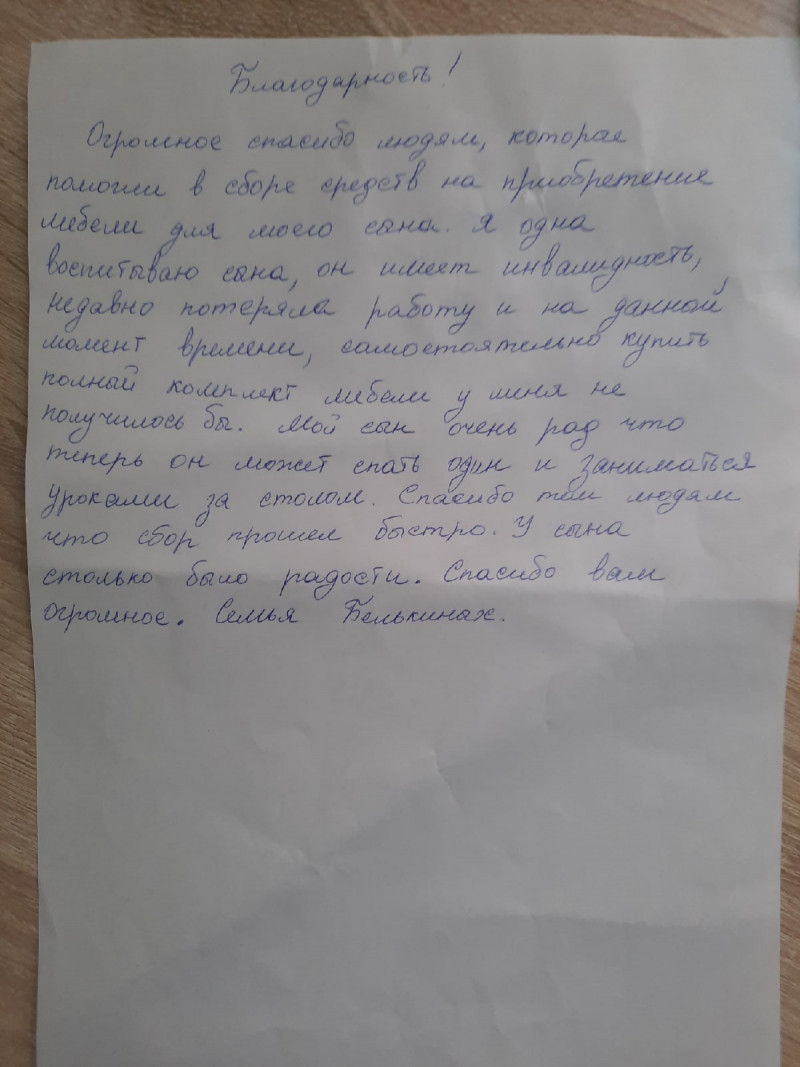 Благодарность!
Огромное спасибо людям, которае
помогли в сборе средств на приобретение
мебели для моего сына. Я одна
воспитываю сына, он имеет инвалидность,
недавно потеряла работу и на данной
момент времени, самостоятельно купить
полный комплект мебели у меня не
получилось бы. Мой сын очень рад что
теперь он может спать один и заниматься
уроками за столом. Спасибо тем людям
что сбор прошел быстро. У сына
столько было радости. Спасибо вам
огромное. Семья Белькинах.